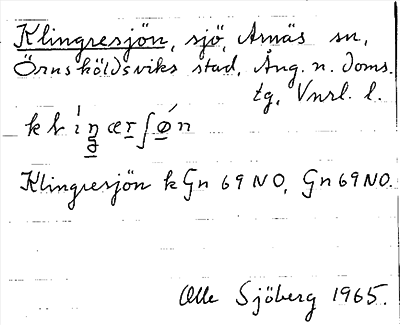 Klingresjön, sjö, Arnäs sn,
Örnsköldsviks stad, Ång. n. doms.
tg, Vnrl. l.
Klingresjön k Gn 69 NO, Gn 69 NO.
Olle Sjöberg 1965.